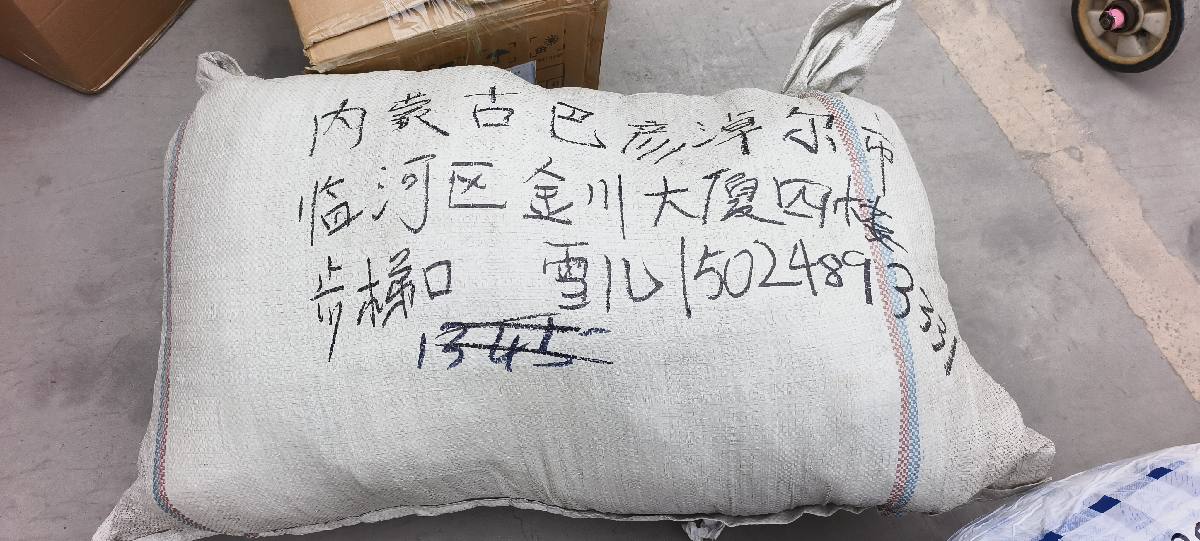 内蒙古巴彦淖尔市
临河区金川大厦四楼
步梯口 雪儿 15024893331
1345